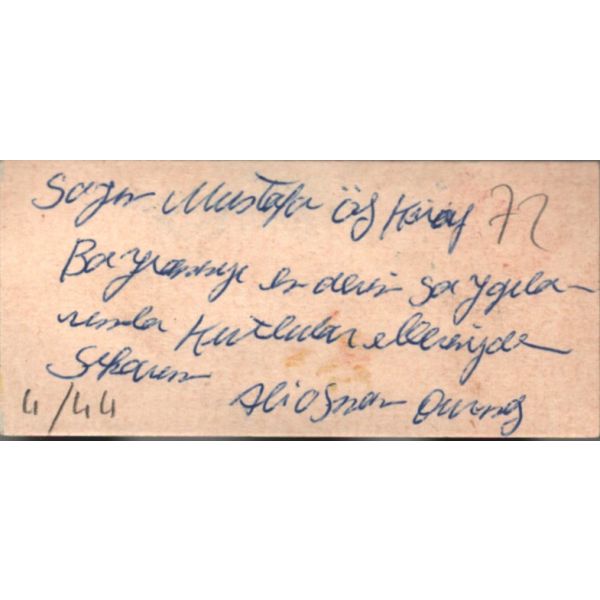 Sayın Mustafa 72
Bayramınızı en derin saygıla-
rımla kutlular ellerinizden
Sıkarım
Ali Osman
4/44